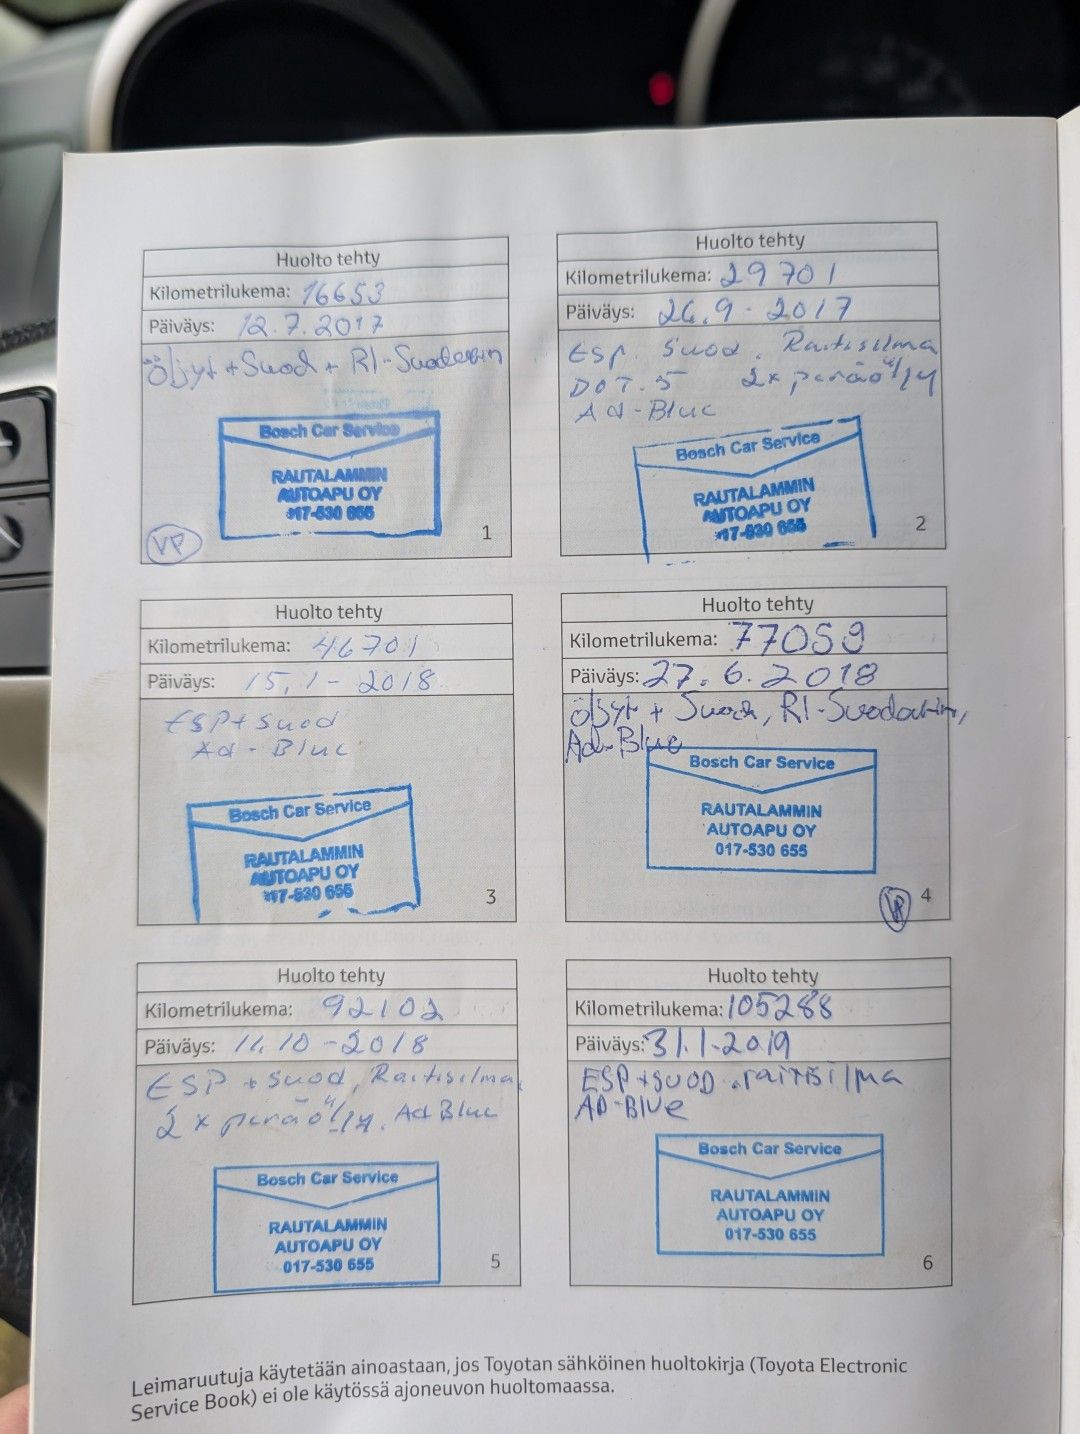 Huolto tehty
Kilometrilukema: 16653
Päiväys: 12.7.2017
Öljyt + Suod + RI-Suodatin
Bosch Car Service
RAUTALAMMIN
AUTOAPU OY
017-530 655
VP
1
Huolto tehty
Kilometrilukema: 29701
Päiväys: 26.9-2017
ESP. Suod. Raitisilma
DOT.5 2x peräöljy
Ad-Blue
Bosch Car Service
RAUTALAMMIN
AUTOAPU OY
017-530 655
2
Huolto tehty
Kilometrilukema: 46701
Päiväys: 15.1-2018
ESP+suod
Ad-Blue
Bosch Car Service
RAUTALAMMIN
AUTOAPU OY
017-530 655
3
Huolto tehty
Kilometrilukema: 77059
Päiväys: 27.6.2018
Öljyt + Suod, RI-Suodatin,
Ad-Blue
Bosch Car Service
RAUTALAMMIN
AUTOAPU OY
017-530 655
VP
4
Huolto tehty
Kilometrilukema: 92102
Päiväys: 11.10-2018
ESP + suod, Raitisilma,
2x peräöljy. Ad Blue
Bosch Car Service
RAUTALAMMIN
AUTOAPU OY
017-530 655
5
Huolto tehty
Kilometrilukema: 105288
Päiväys: 31.1-2019
ESP+SUOD.raitisilma
AD-BLUE
Bosch Car Service
RAUTALAMMIN
AUTOAPU OY
017-530 655
6
Leimaruutuja käytetään ainoastaan, jos Toyotan sähköinen huoltokirja (Toyota Electronic
Service Book) ei ole käytössä ajoneuvon huoltomaassa.